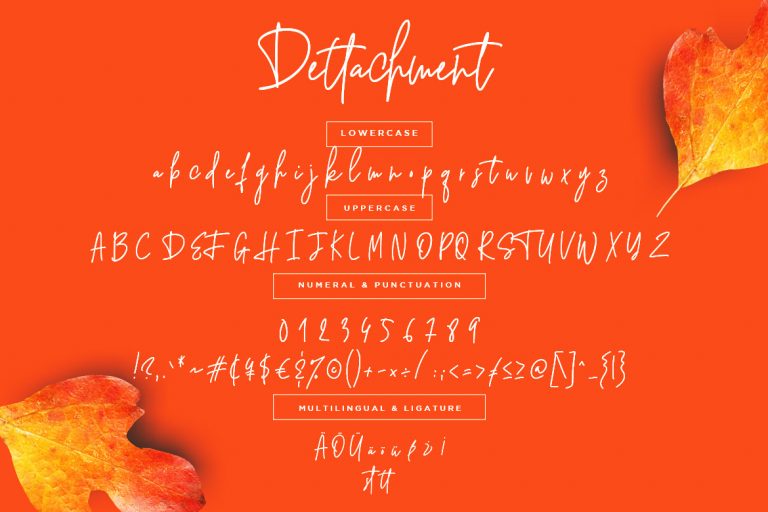 Dettachment
LOWERCASE
a b c d e f g h i j k l m n o p q r s t u v w x y z
UPPERCASE
A B C D E F G H I J K L M N O P Q R S T U V W X Y Z
NUMERAL & PUNCTUATION
0 1 2 3 4 5 6 7 8 9
! ? , . ` * ~ # ¢ ¥ $ € & % © ( ) + - × ÷ / : ; < = > ≠ ≤ ≥ @ [ \ ] ^ _ { | }
MULTILINGUAL & LIGATURE
Ä Ö Ü ä ö ü ß ¿ ¡
st tt